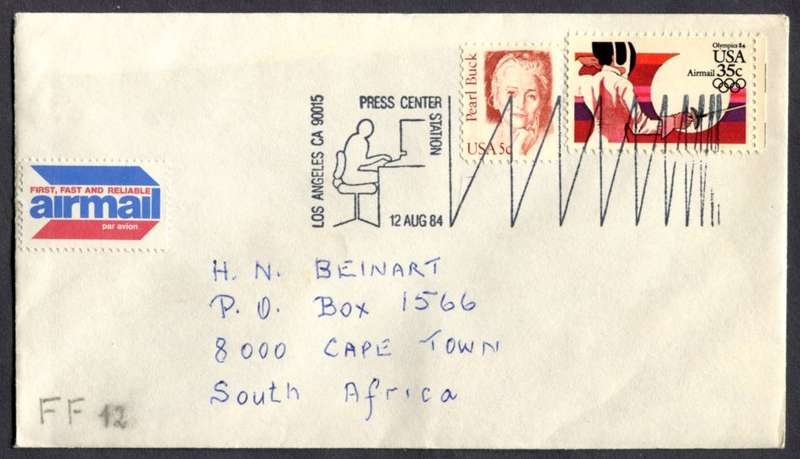 Pearl Buck
USA 5c
Olympics 84
USA
Airmail 35c
LOS ANGELES CA 90015
PRESS CENTER
STATION
12 AUG 84
FIRST, FAST AND RELIABLE
airmail
par avion
H. N. BEINART
P. O. Box 1566
8000 CAPE TOWN
South Africa
FF 12